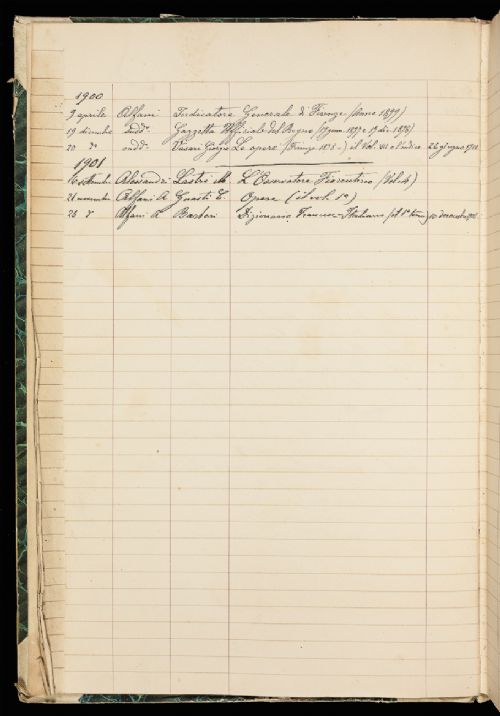 1900
9 aprile Alfani Indicatore Generale di Firenze (Anno 1899)
19 dicembre sudd° Gazzetta Ufficiale del Regno (
20 d° sudd° Vasari Giorgio Le opere (Firenze 1878 - ) il Vol. e l'indice 26 giugno
1901
16 settembre Alessandri Lastri M. L'Osservatore Fiorentino (Vol. 4)
21 novembre Alfani A Guasti C. Opere (il vol. 1°)
28 d° Alfani A. Barberi Dizionario Francese-Italiano (il 1° tomo) 10 dicembre